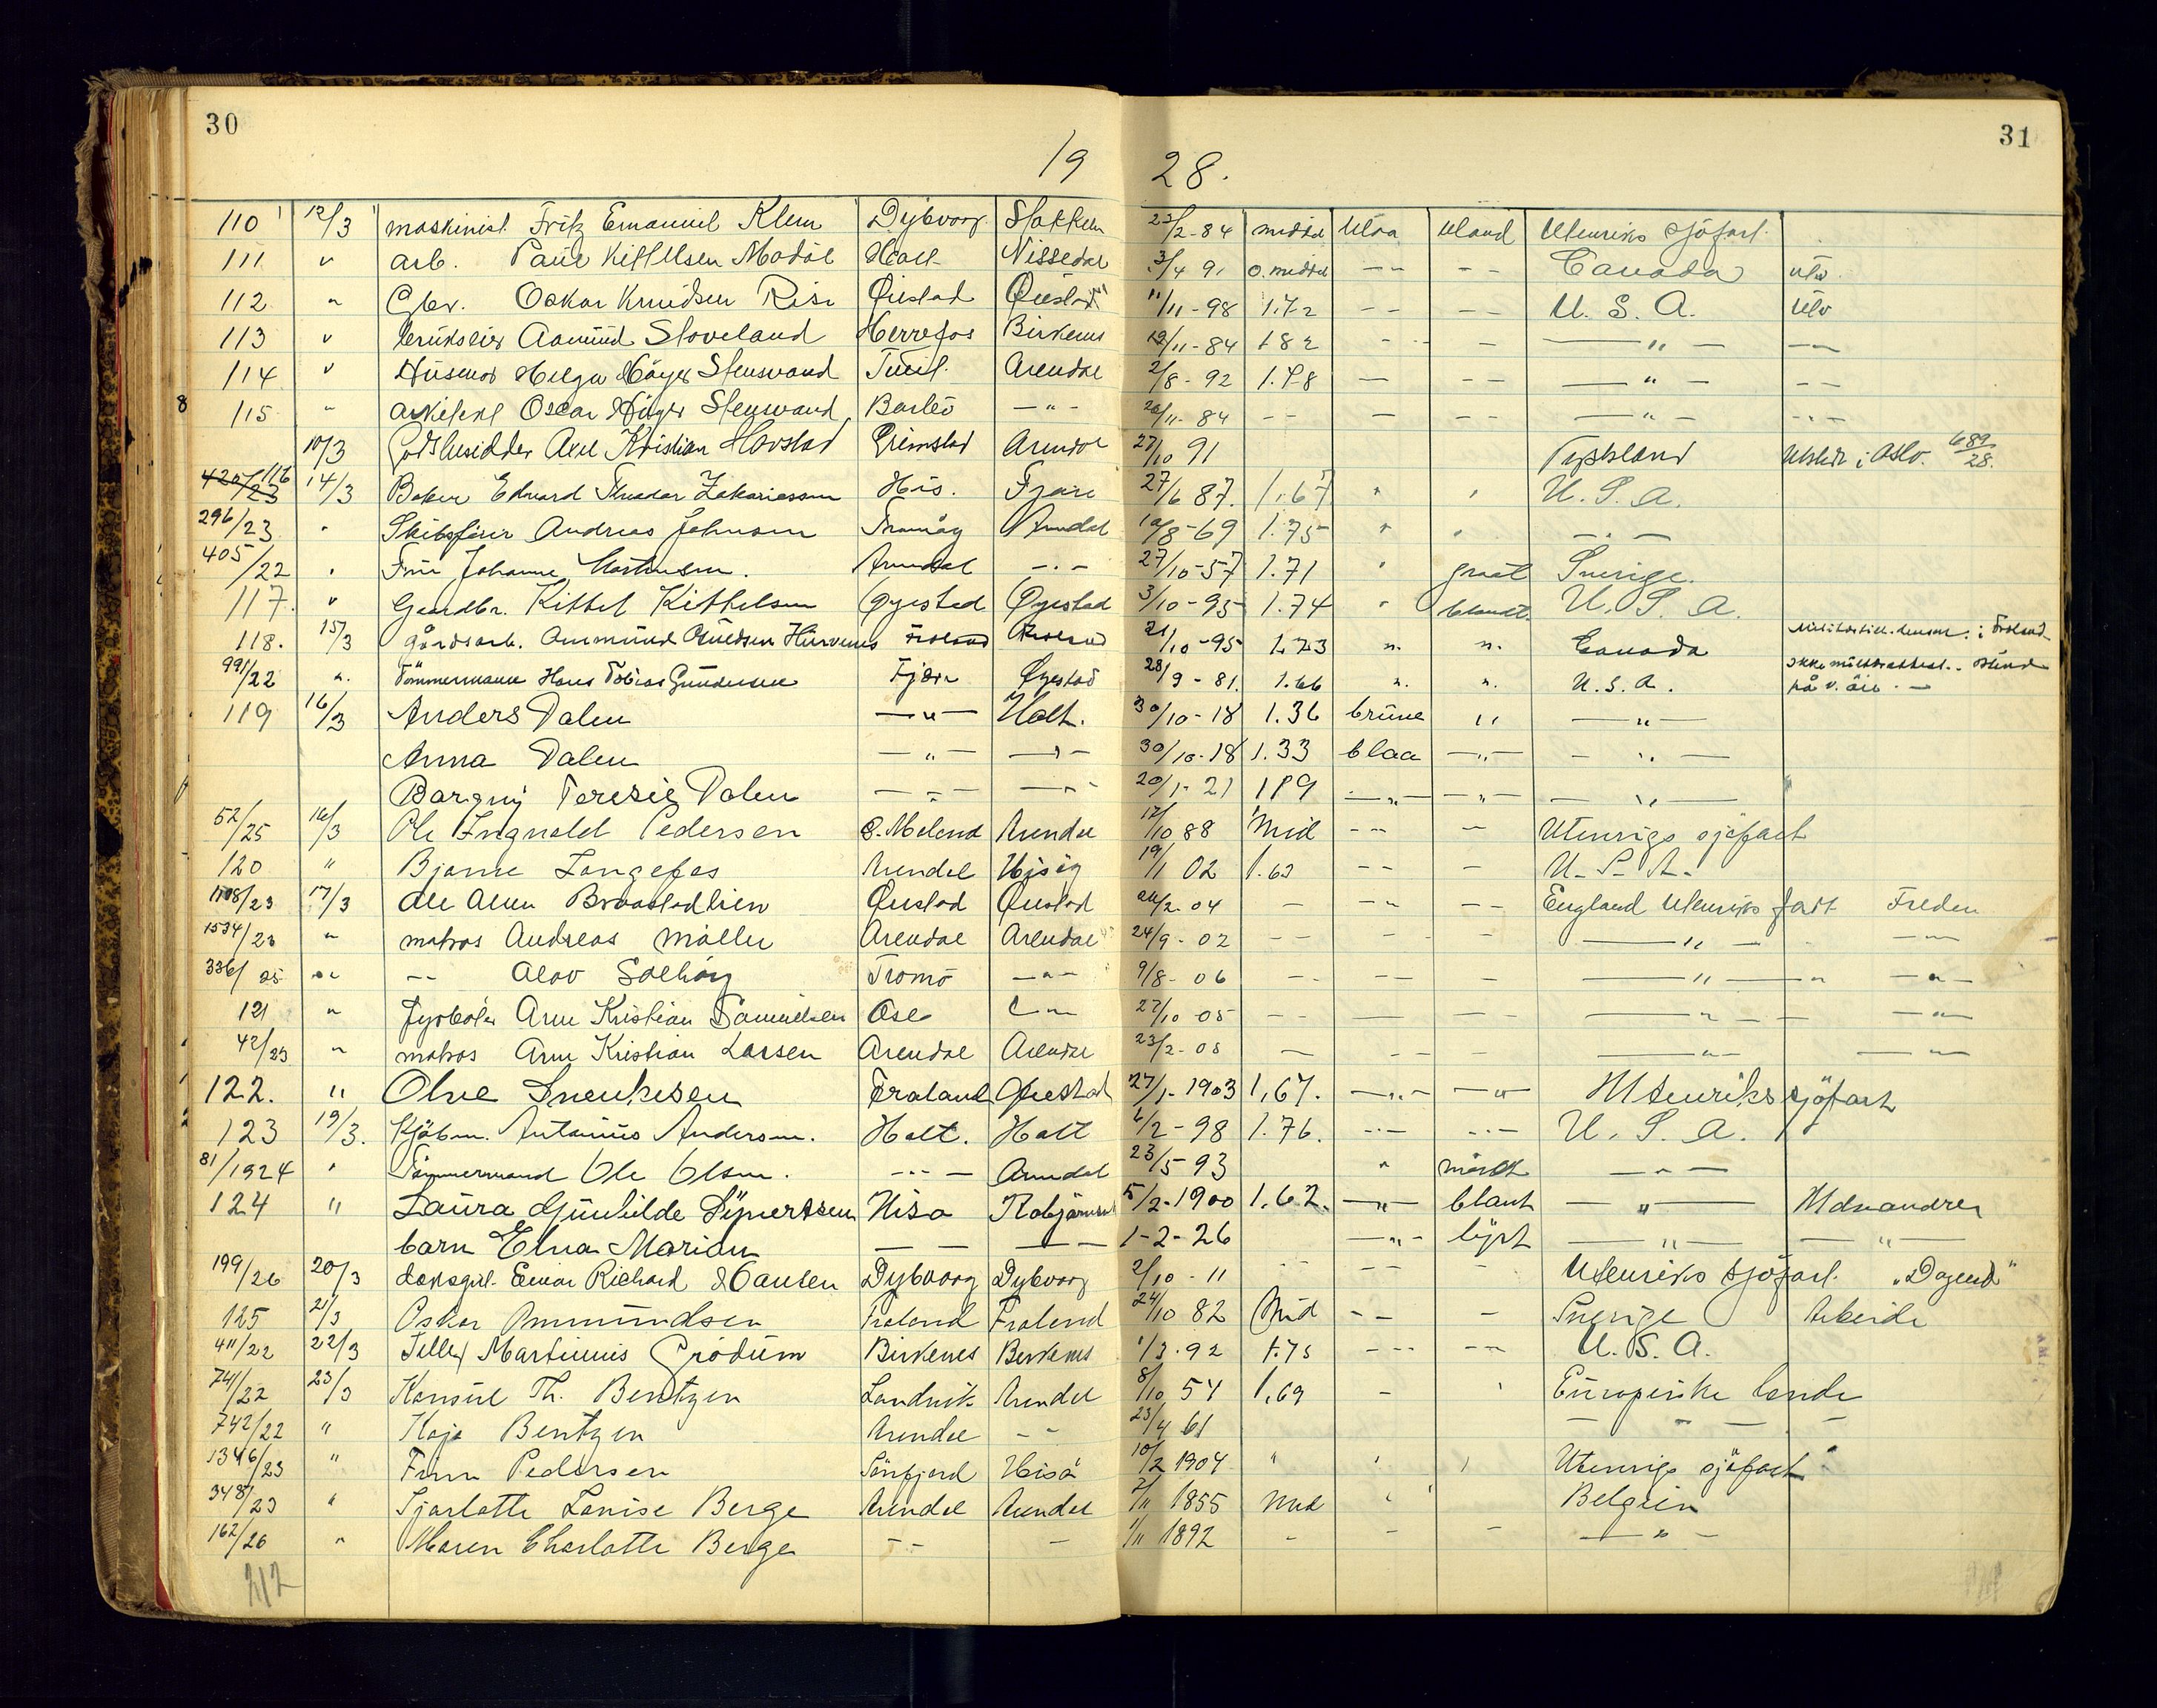 30
31
19 28.
110 12/3 maskinist Fritz Emanuel Klem Dybvaag Stokken 23/2-84 middel blaa bland Utenriks sjöfart.
111 " arb. Paul Kittelsen Modal Holt Nissedal 3/4 91 o. middel -- -- Canada utv.
112 " Gbr. Oskar Knudsen Rise Öiestad Öiestad 11/11-98 1.72 -- -- U. S. A. Utv
113 " brukseier Aamund Stoveland Herrefos Birkenes 12/11-84 182 -- - —"— --
114 " Husmor Helga Höyer Stensvand Tveit. Arendal 2/8-92 1.78 — -- —"— --
115 " arkitekt Oscar Höyer Stensvand Barbo —"— 20/11-84 -- — -- —"— --
10/3 Godsbesidder Axel Kristian Hovstad Grimstad Arendal 27/10 91 Tyskland Utstedt i Oslo. 689/28.
425/23 116 14/3 Baker Edvard Theodor Zakariassen His. Fjære 27/6 87. 1.67 " " U. S. A.
296/23 " Skibsfører Andreas Johnsen Tromøy Arendal 10/8-69 1.75 " " —"—
405/22 " Fru Johanne Mortensen. Arendal —"— 27/10-57 1.71 " graat Sverige.
117. " Gaardbr. Kittel Kittelsen Øyestad Øyestad 3/10-95 1.74 " blandt. U. S. A.
118. 15/3 gårdsarb. Ommund Osuldsen Hurvenes Froland Froland 21/10-95 1.73 ". ". Canada i Froland
991/22 ". Tömmermann Hans Tobias Gundersen Fjære Øyestad 28/9-81. 1.66 ". ". U. S. A. Blind på v. öie. —
119 16/3 Anders Dalen —"— Holt. 30/10-18 1.36 brune " —"—
Anna Dalen —"— —"— 30/10-18 1.33 blaa —"— —"—
Borgny Teresie Dalen —"— —"— 20/1-21 119 —"— —"— —"—
52/25 16/3 Ole Ingvald Pedersen Ø. Moland Arendal 17/10 88 Mid -- — Utenrigs sjöfart
120 " Bjarne Langefos Arendal Hisöy 19/1 02 1.63 -- - U. S. A.
1108/23 17/3 Ole Alex Braastadlien Öiestad Öiestad 24/2-04 - -- -- England Utenriks fart Freden
1534/23 " matros Andreas Möller Arendal Arendal 24/9-02 -- -- - —"— —"—
336/25 " -- Olav Solhöug Tromö —"— 9/8-06 -- -- - —"— " —"—
121 " fyrböter Arne Kristian Samuelsen Ose —"— 27/10 05 -- — -- —"— —"—
42/23 " matros Arne Kristian Larsen Arendal Arendal 23/2-08 — -- -- —"— —"—
122. " Olve Svenkesen Froland Öiestad 27/1-1903 1,67. —"— —"— Utenriks sjöfart
123 19/3. Kjöbm. Antonius Andersen. Holt. Holt 6/2-98 1.76. —"— —"— U. S. A.
81/1924 " Tömmermand Ole Olsen. —"— Arendal 23/5-93 " mörkt —"—
124 " Laura Gunhilde Syvertsen Hisø Torbjörnsbu 5/2-1900 1.62. —"— blant —"— Utvandrer
barn Elna Marion — — — — 1-2-26 —"— lyst —"— —"—
199/26 20/3 dæksgut. Einar Richard Hansen Dybvaag Dybvaag 2/10-11 -- -- - Utenriks sjöfart. "Dagend"
125 21/3 Oskar Ommundsen Froland Froland 24/10 82 Mid -- - Sverige Arbeide
411/22 22/3 Tellef Martinius Grödum Birkenes Birkenes 1/3-92 1.75 -- -- U. S. A.
741/22 23/3 Konsul Th. Bentzen Landvik Arendal 8/10 54 1,69 - ' Europeiske lande
742/22 " Kaja Bentzen Arendal -- 23/4 61 — " — —
1346/23 " Finn Pedersen Sönfjord Hisö 10/2 1904 " ' ' Utenrigs sjöfart
348/23 " Sjarlotte Lovise Berge Arendal Arendal 7/11 1855 Mid ' ' Belgien
162/26 " Maren Charlotte Berge -- - 1/11 1892 - - - —"—
212